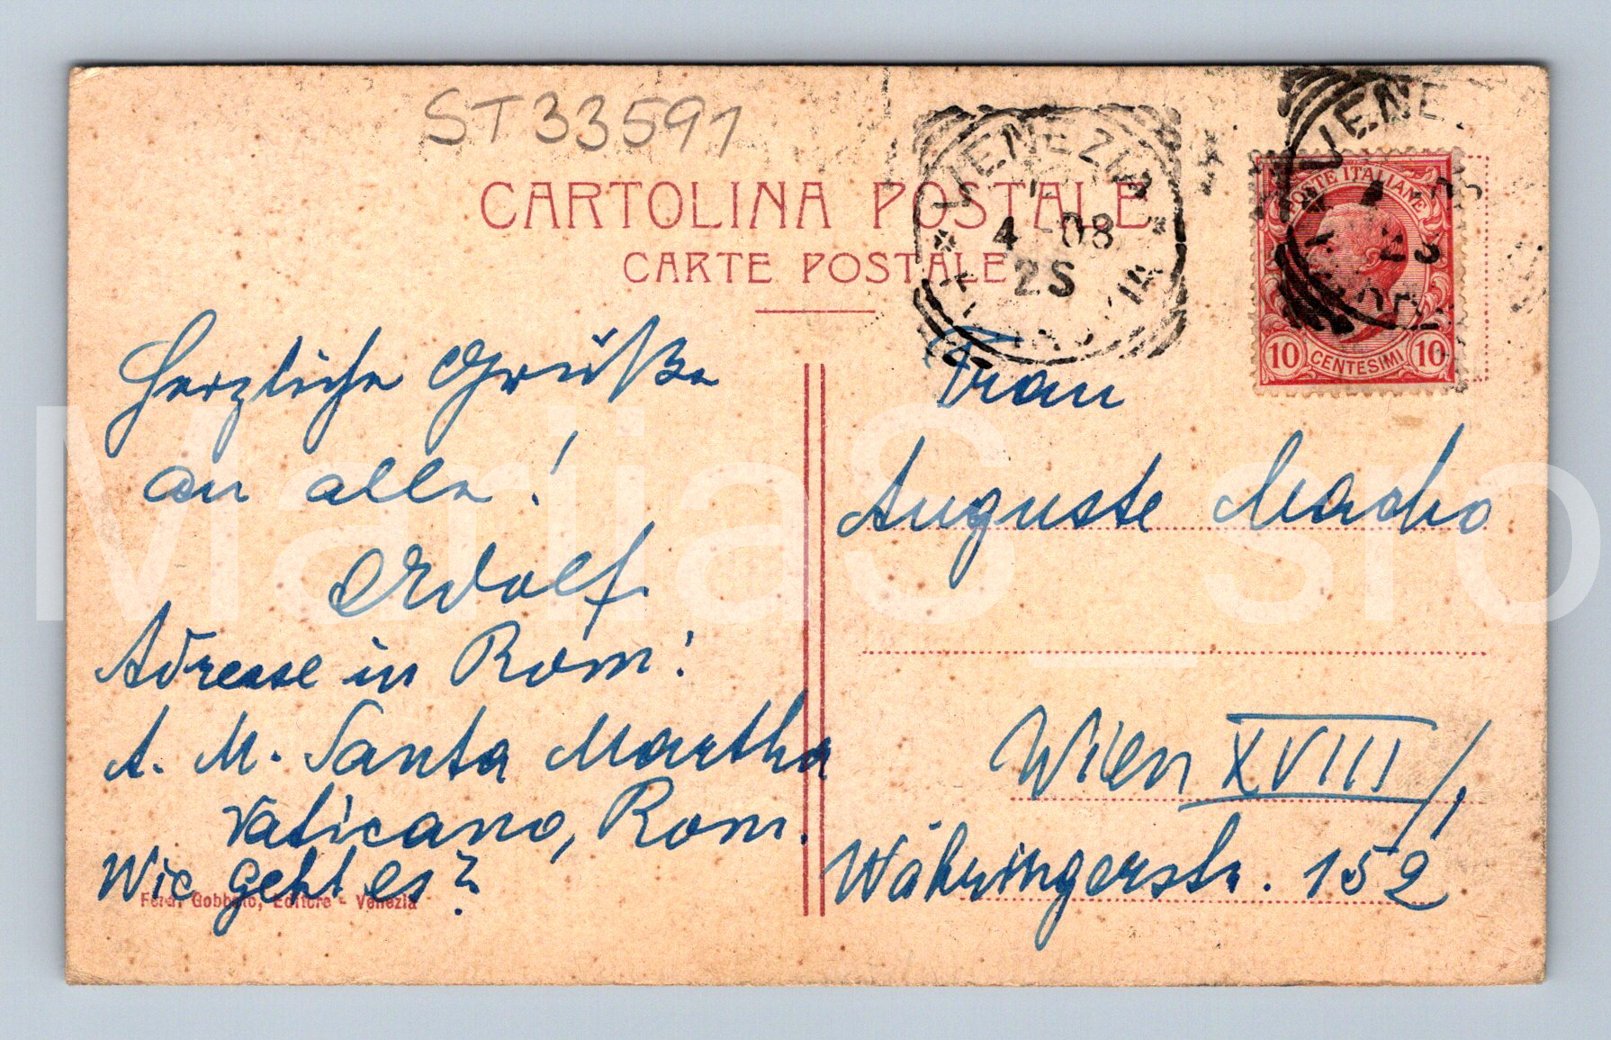 ST33591
CARTOLINA POSTALE
CARTE POSTALE
VENEZIA
4 08
2S
VENE
POSTE ITALIANE
10 CENTESIMI 10
Herzliche Grüße
an alle!
Adolf
Adresse in Rom:
A. M. Santa Martha
Vaticano, Rom.
Wie geht es?
Ferd. Gobbato, Editore - Venezia
Frau
Auguste Macho
Wien XVIII/1
Währingerstr. 152
MariiaS_sro